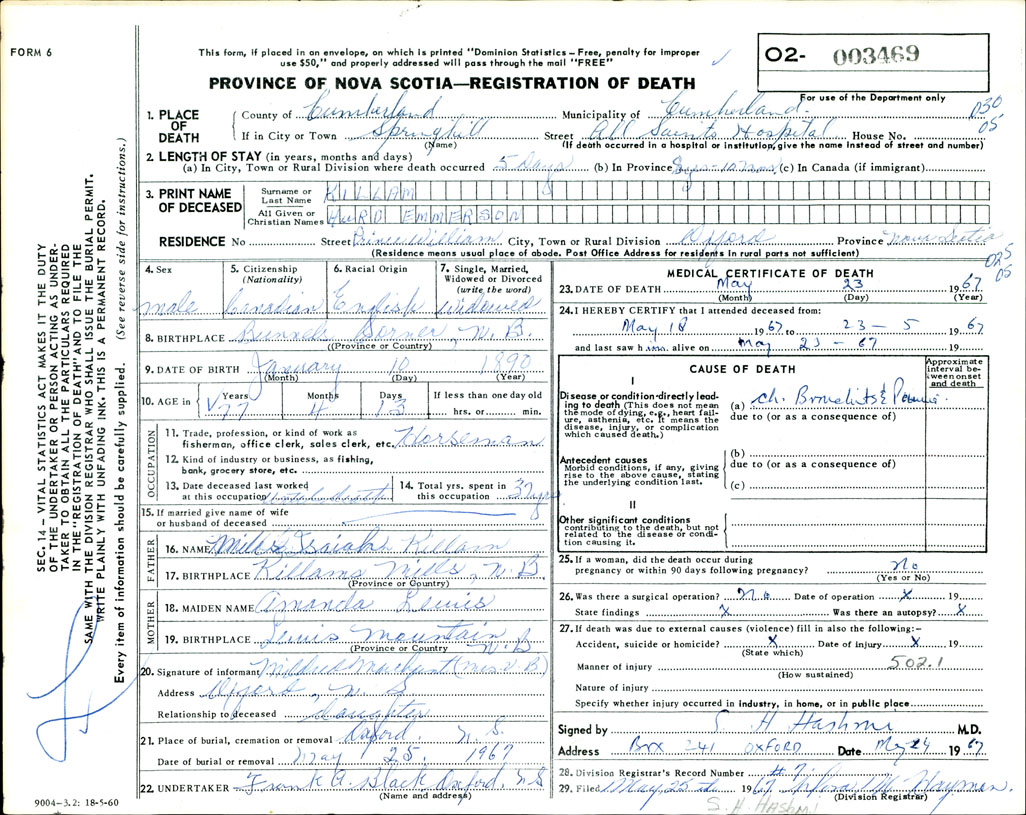 FORM 6
This form, if placed in an envelope, on which is printed "Dominion Statistics – Free, penalty for improper
use $50," and properly addressed will pass through the mail "FREE"
O2- 003469
For use of the Department only
PROVINCE OF NOVA SCOTIA—REGISTRATION OF DEATH
030
05
1. PLACE OF DEATH
County of Cumberland Municipality of Cumberland
If in City or Town Springhill Street All Saints Hospital House No.
(Name) (If death occurred in a hospital or institution, give the name instead of street and number)
2. LENGTH OF STAY (in years, months and days)
(a) In City, Town or Rural Division where death occurred 5 Days (b) In Province (c) In Canada (if immigrant)
3. PRINT NAME OF DECEASED
Surname or Last Name KILLAM
All Given or Christian Names HURD EMMERSON
RESIDENCE No Street Prince William City, Town or Rural Division Oxford Province Nova Scotia
(Residence means usual place of abode. Post Office Address for residents in rural parts not sufficient)
025
05
4. Sex male
5. Citizenship (Nationality) Canadian
6. Racial Origin English
7. Single, Married, Widowed or Divorced (write the word) Widowed
8. BIRTHPLACE Corner, N. B.
(Province or Country)
9. DATE OF BIRTH January 10 1890
(Month) (Day) (Year)
10. AGE in Years 77 Months 4 Days 13 If less than one day old hrs. or min.
OCCUPATION
11. Trade, profession, or kind of work as fisherman, office clerk, sales clerk, etc. Horseman
12. Kind of industry or business, as fishing, bank, grocery store, etc.
13. Date deceased last worked at this occupation
14. Total yrs. spent in this occupation yrs
15. If married give name of wife or husband of deceased
FATHER
16. NAME Isaiah Killam
17. BIRTHPLACE Killams Mills, N. B.
(Province or Country)
MOTHER
18. MAIDEN NAME Amanda Lewis
19. BIRTHPLACE Lewis Mountain N. B
(Province or Country
20. Signature of informant Mildred (Mrs. V. B)
Address Oxford, N. S
Relationship to deceased daughter
21. Place of burial, cremation or removal Oxford. N. S.
Date of burial or removal May 25. 1967
22. UNDERTAKER Frank A. Black Oxford, N S
(Name and address)
MEDICAL CERTIFICATE OF DEATH
23. DATE OF DEATH May 23 1967
(Month) (Day) (Year)
24. I HEREBY CERTIFY that I attended deceased from:
May 18 1967 to: 23 – 5 1967
and last saw him alive on May 23 – 67 19
CAUSE OF DEATH
Approximate interval between onset and death
I
Disease or condition directly leading to death (This does not mean the mode of dying, e.g., heart failure, asthenia, etc. It means the disease, injury, or complication which caused death.)
(a) Ch. Bronchitis &
due to (or as a consequence of)
Antecedent causes
Morbid conditions, if any, giving rise to the above cause, stating the underlying condition last.
(b)
due to (or as a consequence of)
(c)
II
Other significant conditions
contributing to the death, but not related to the disease or condition causing it.
25. If a woman, did the death occur during pregnancy or within 90 days following pregnancy? No
(Yes or No)
26. Was there a surgical operation? No Date of operation X 19
State findings X Was there an autopsy? X
27. If death was due to external causes (violence) fill in also the following:–
Accident, suicide or homicide? X Date of injury X 19
(State which)
Manner of injury 502.1
(How sustained)
Nature of injury
Specify whether injury occurred in industry, in home, or in public place
Signed by S. H Hashmi M.D.
Address Box 241 OXFORD Date May 24 1967
28. Division Registrar's Record Number #7
29. Filed May 25 1967 Hayman.
(Division Registrar)
S. H. HASHMI
SEC. 14 – VITAL STATISTICS ACT MAKES IT THE DUTY
OF THE UNDERTAKER OR PERSON ACTING AS UNDER-
TAKER TO OBTAIN ALL THE PARTICULARS REQUIRED
IN THE "REGISTRATION OF DEATH" AND TO FILE THE
SAME WITH THE DIVISION REGISTRAR WHO SHALL ISSUE THE BURIAL PERMIT.
WRITE PLAINLY WITH UNFADING INK. THIS IS A PERMANENT RECORD.
Every item of information should be carefully supplied. (See reverse side for instructions.)
9004–3.2: 18-5-60